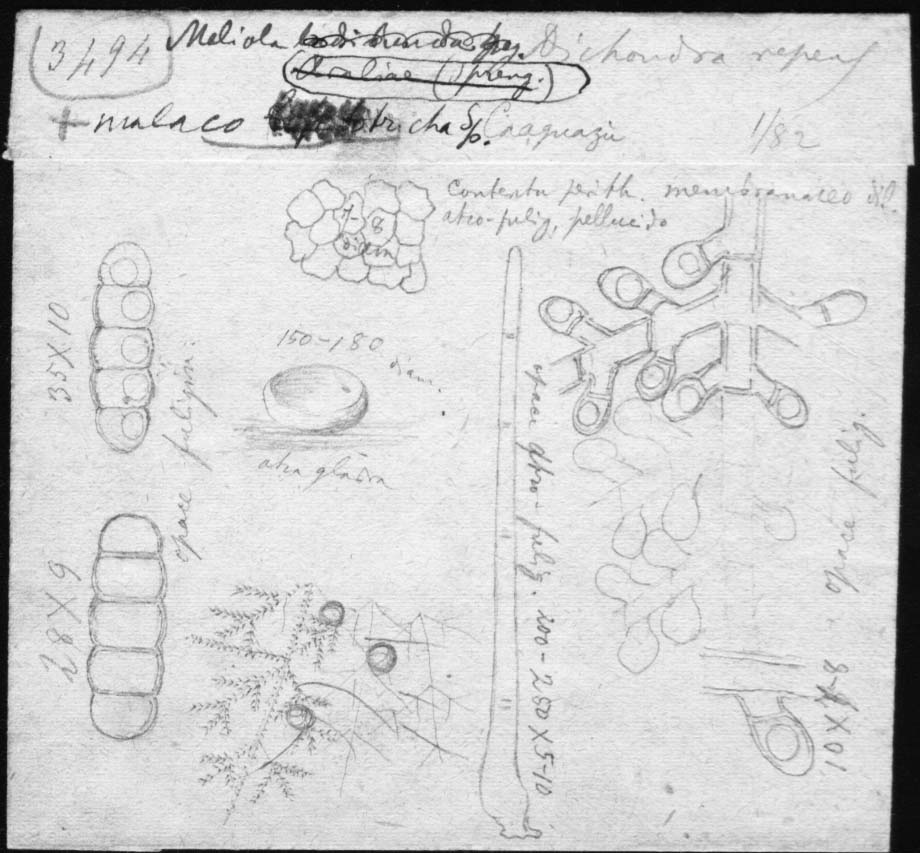 3494 Meliola Dichondra repens
Araliae (Spreng.)
+ malaco tricha Sp. Caaguazú 1/82
contextu perith. membranaceo
atro-fulig, pellucido
7-8
diam
35X10
opace fuligin:
150-180
diam.
atra glabra
28X9
opace atro-fulig. 200-250X5-10
opace fulig.
10X